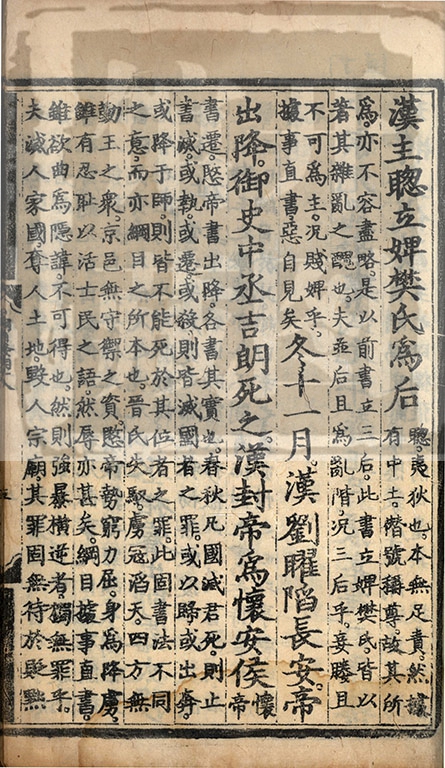 漢主聦立婢樊氏為后
聦夷狄也本無足責然據
有中土僭號稱尊故其所
為亦不容盡略是以前書立三后此書立婢樊氏皆以
著其雜亂之醜也夫並后且為亂階况三后乎妾媵且
不可為主况賤婢乎
據事直書惡自見矣
冬十一月漢劉曜陷長安帝
出降御史中丞吉朗死之漢封帝為懷安侯
懷
帝
書遷愍帝書出降各書其實也春秋凡國滅君死則止
書滅或執或遷或殺則皆滅國者之罪或以歸或出奔
或降于師則皆不能死於其位者之罪此固書法不同
之意而亦綱目之所本也晉氏失馭虜冦滔天四方無
勤王之衆京邑無守禦之資愍帝勢窮力屈身為降虜
雖有忍恥以活士民之語然辱亦甚矣綱目據事直書
雖欲曲為隱諱不可得也然則強暴橫逆者獨無罪乎
夫滅人家國奪人土地毀人宗廟其罪固無待於貶黜